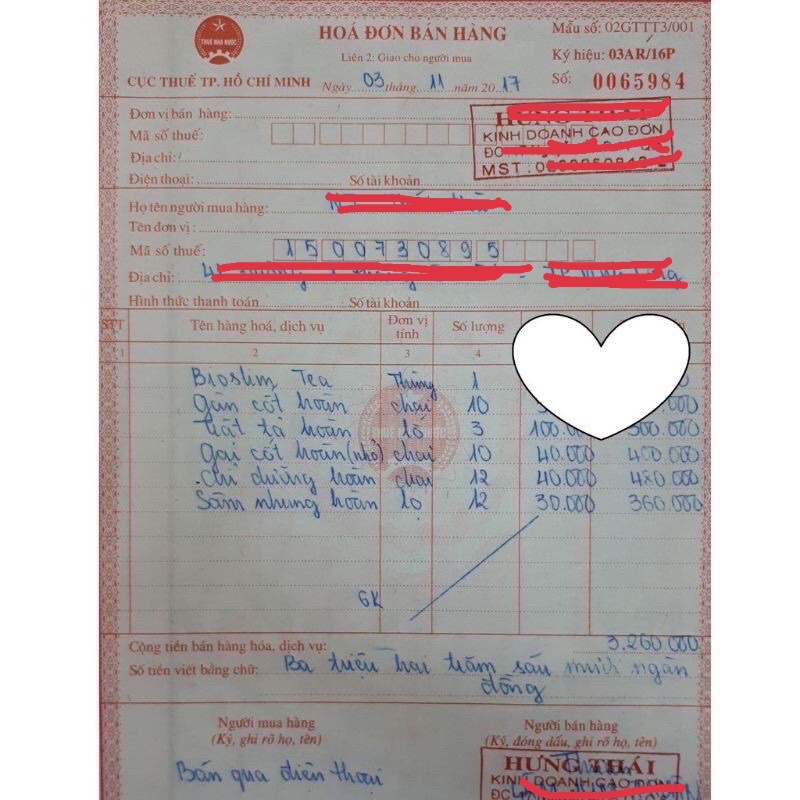 THUẾ NHÀ NƯỚC
HOÁ ĐƠN BÁN HÀNG
Mẫu số: 02GTTT3/001
Liên 2: Giao cho người mua
Ký hiệu: 03AR/16P
CỤC THUẾ TP. HỒ CHÍ MINH
Ngày 03 tháng 11 năm 2017
Số: 0065984
Đơn vị bán hàng:
HƯNG THÁI
Mã số thuế:
KINH DOANH CAO ĐƠN
Địa chỉ:
Điện thoại: Số tài khoản
MST:
Họ tên người mua hàng:
Tên đơn vị:
Mã số thuế: 1500730895
Địa chỉ:
Hình thức thanh toán Số tài khoản
STT Tên hàng hoá, dịch vụ Đơn vị tính Số lượng
1 2 3 4
Bioslim Tea Thùng 1
chai 10
hoàn lọ 3
cốt hoàn (nhỏ) chai 10 40.000 400.000
dưỡng hoàn chai 12 40.000 480.000
Sâm nhung hoàn lọ 12 30.000 360.000
6K
Cộng tiền bán hàng hóa, dịch vụ: 3.260.000
Số tiền viết bằng chữ: Ba triệu hai trăm sáu mươi ngàn
đồng
Người mua hàng Người bán hàng
(Ký, ghi rõ họ, tên) (Ký, đóng dấu, ghi rõ họ, tên)
Bán qua điện thoại
HƯNG THÁI
KINH DOANH CAO ĐƠN